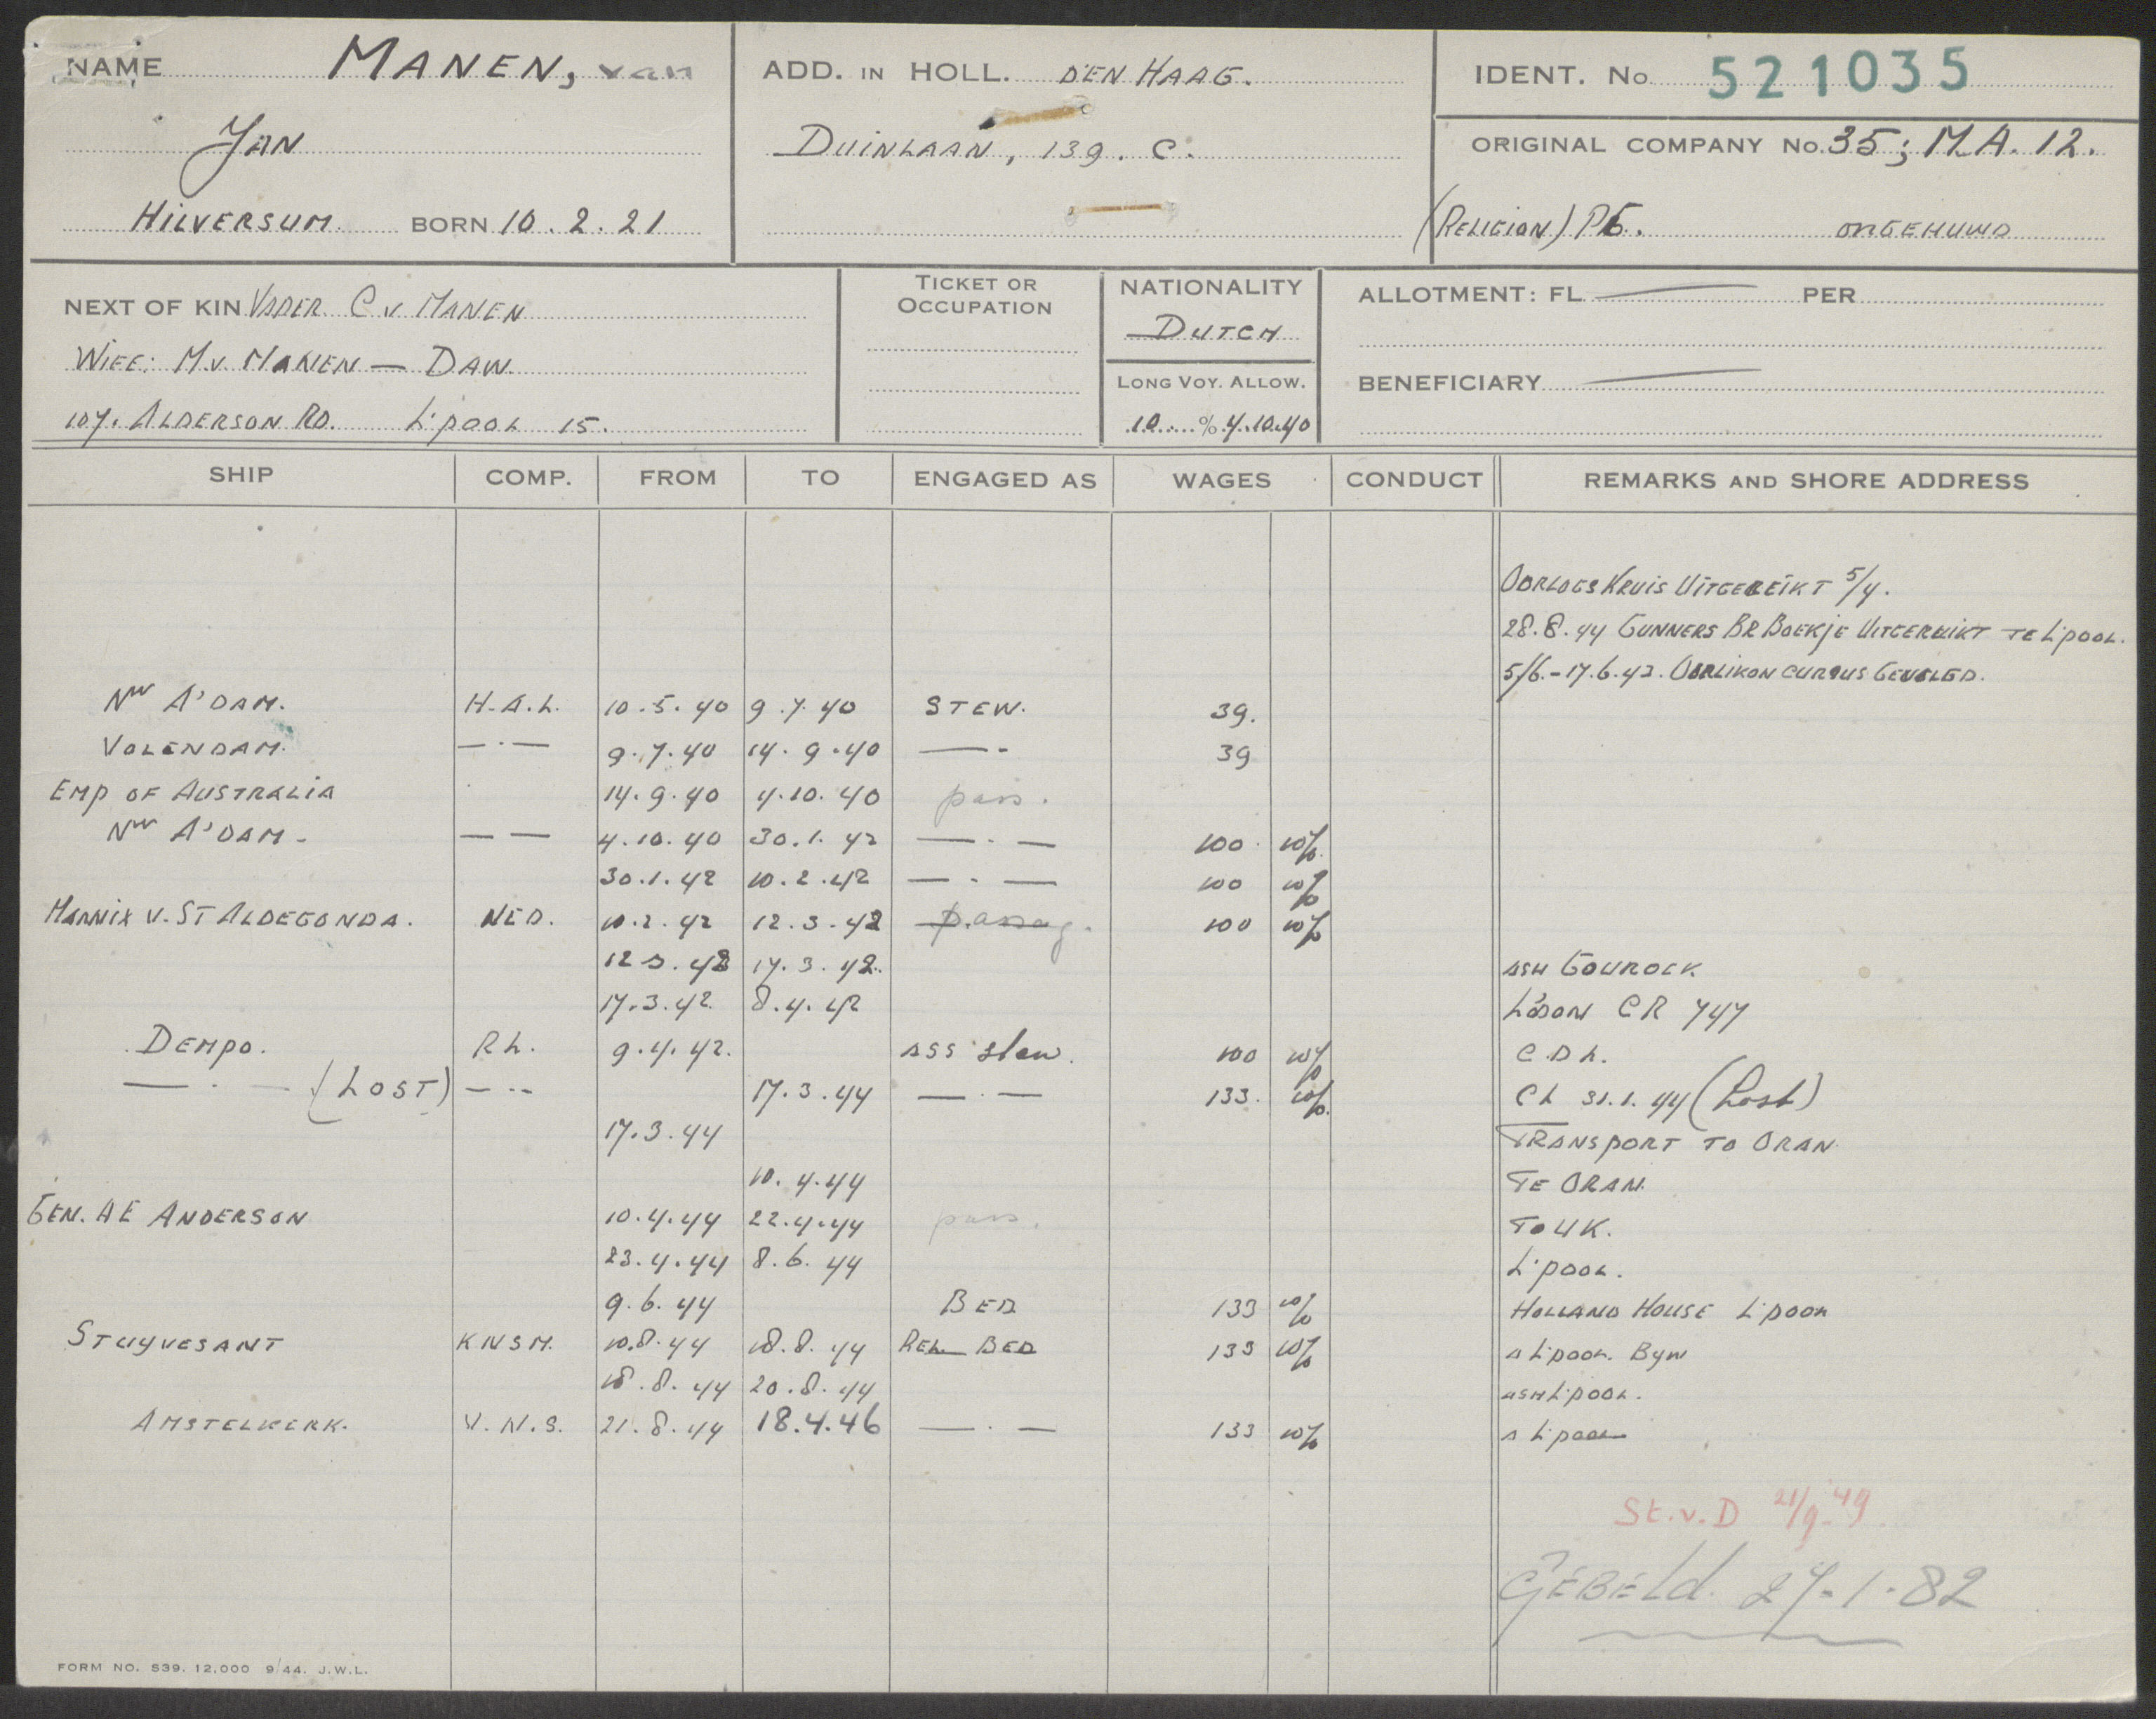 NAME MANEN, van
Jan
HILVERSUM BORN 10.2.21
ADD. IN HOLL. DEN HAAG.
DUINLAAN, 139. C.
IDENT. No 521035
ORIGINAL COMPANY No. 35; M.A. 12.
(RELIGION) PG. ONGEHUWD
NEXT OF KIN VADER C v MANEN
WIFE: M.v. MANEN — DAW.
107. ALDERSON RD. L'POOL 15.
TICKET OR OCCUPATION
NATIONALITY
DUTCH
LONG VOY. ALLOW.
10 % 4.10.40
ALLOTMENT: FL — PER
BENEFICIARY —
SHIP COMP. FROM TO ENGAGED AS WAGES CONDUCT REMARKS AND SHORE ADDRESS
OORLOGSKRUIS UITGEREIKT 5/4.
28.8.44 GUNNERS BR BOEKJE UITGEREIKT TE L'POOL.
5/6.-17.6.42. OERLIKON CURSUS GEVOLGD.
Nw A'DAM. H.A.L. 10.5.40 9.7.40 STEW. 39.
VOLENDAM. —.— 9.7.40 14.9.40 —- 39
EMP OF AUSTRALIA 14.9.40 4.10.40 pass.
Nw A'DAM - — — 4.10.40 30.1.42 —.— 100 10%
30.1.42 10.2.42 —.— 100 10%
MARNIX V. ST ALDEGONDA. NED. 10.2.42 12.3.42 passag. 100 10%
12 3.42 17.3.42. ASH GOUROCK
17.3.42 8.4.42 L'DON CR 747
DEMPO. RL. 9.4.42. ASS stew. 100 10% C.D L.
—.— (LOST) —-- 17.3.44 —.— 133. 10% CL 31.1.44 (Lost)
17.3.44 TRANSPORT TO ORAN
10.4.44 TE ORAN.
GEN. AE ANDERSON 10.4.44 22.4.44 pass. TO UK.
23.4.44 8.6.44 L'POOL.
9.6.44 BED 133 10% HOLLAND HOUSE L'POOL
STUYVESANT KNSM. 10.8.44 18.8.44 REL BED 133 10% A L'POOL. BYW
18.8.44 20.8.44 ASH L'POOL.
AMSTELKERK. V.N.S. 21.8.44 18.4.46 —.— 133 10% A L'POOL
St.v.D 21/9-49
GEBELD. 27-1-82
FORM NO. S39. 12,000 9/44. J.W.L.